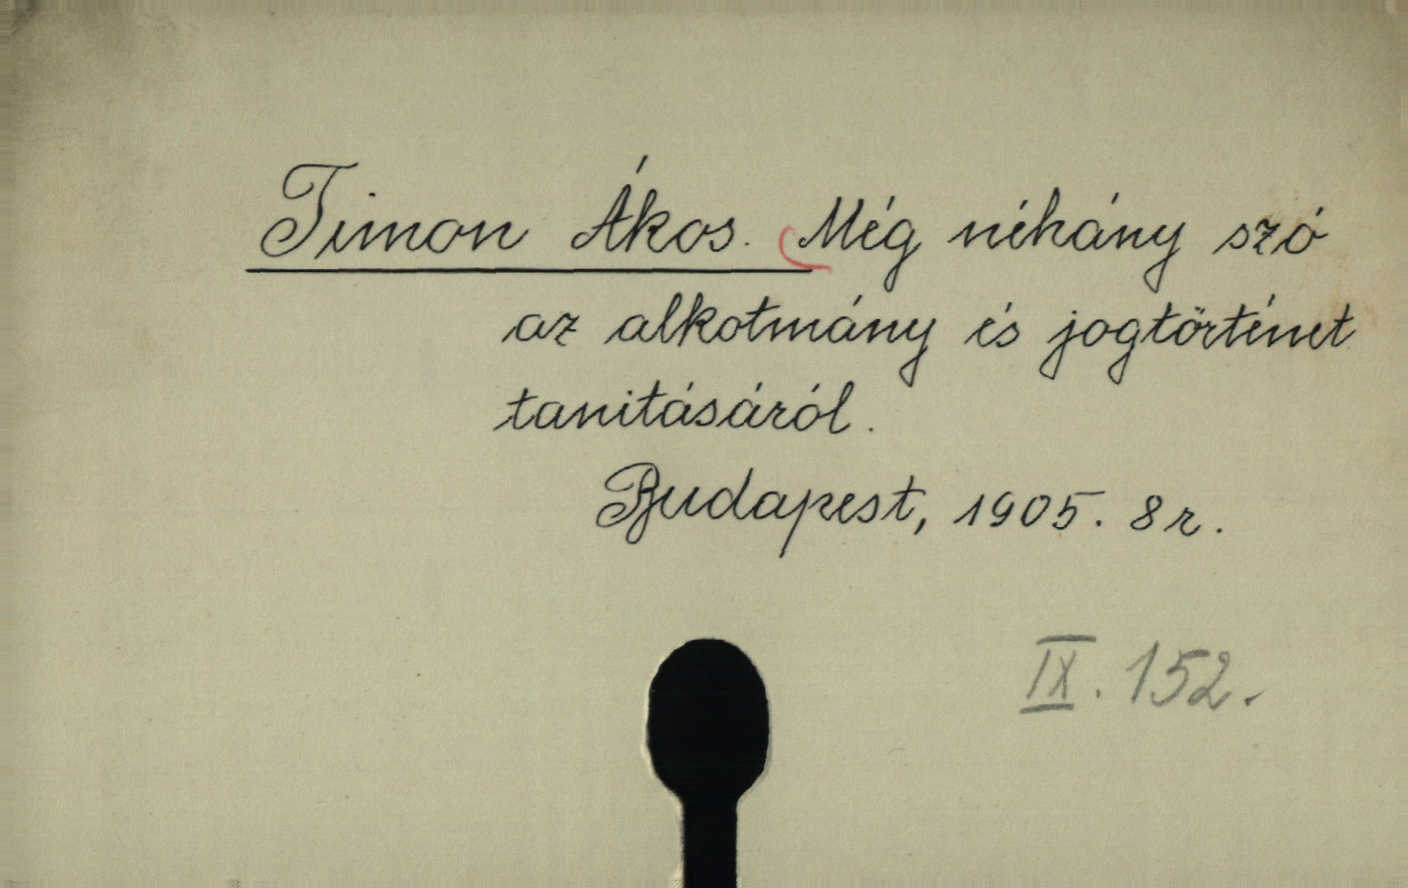 Timon Ákos. Még néhány szó
az alkotmány és jogtörténet
tanitásáról.
Budapest, 1905. 8 r.
IX. 152.